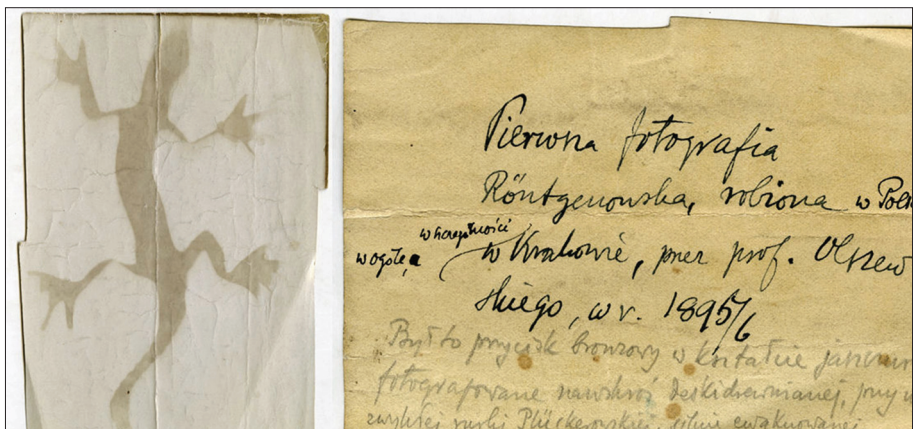 Pierwsza fotografia
Röntgenowska, robiona w Pols
w ogóle, a w szczególności w Krakowie, przez prof. Olszew
skiego, w r. 1895/6
Był to przycisk bronzowy w kształcie jaszczur
fotografowane nawskroś deski drewnianej, przy u
zwykłej rurki Plückerowskiej, silnie ewakuowanej